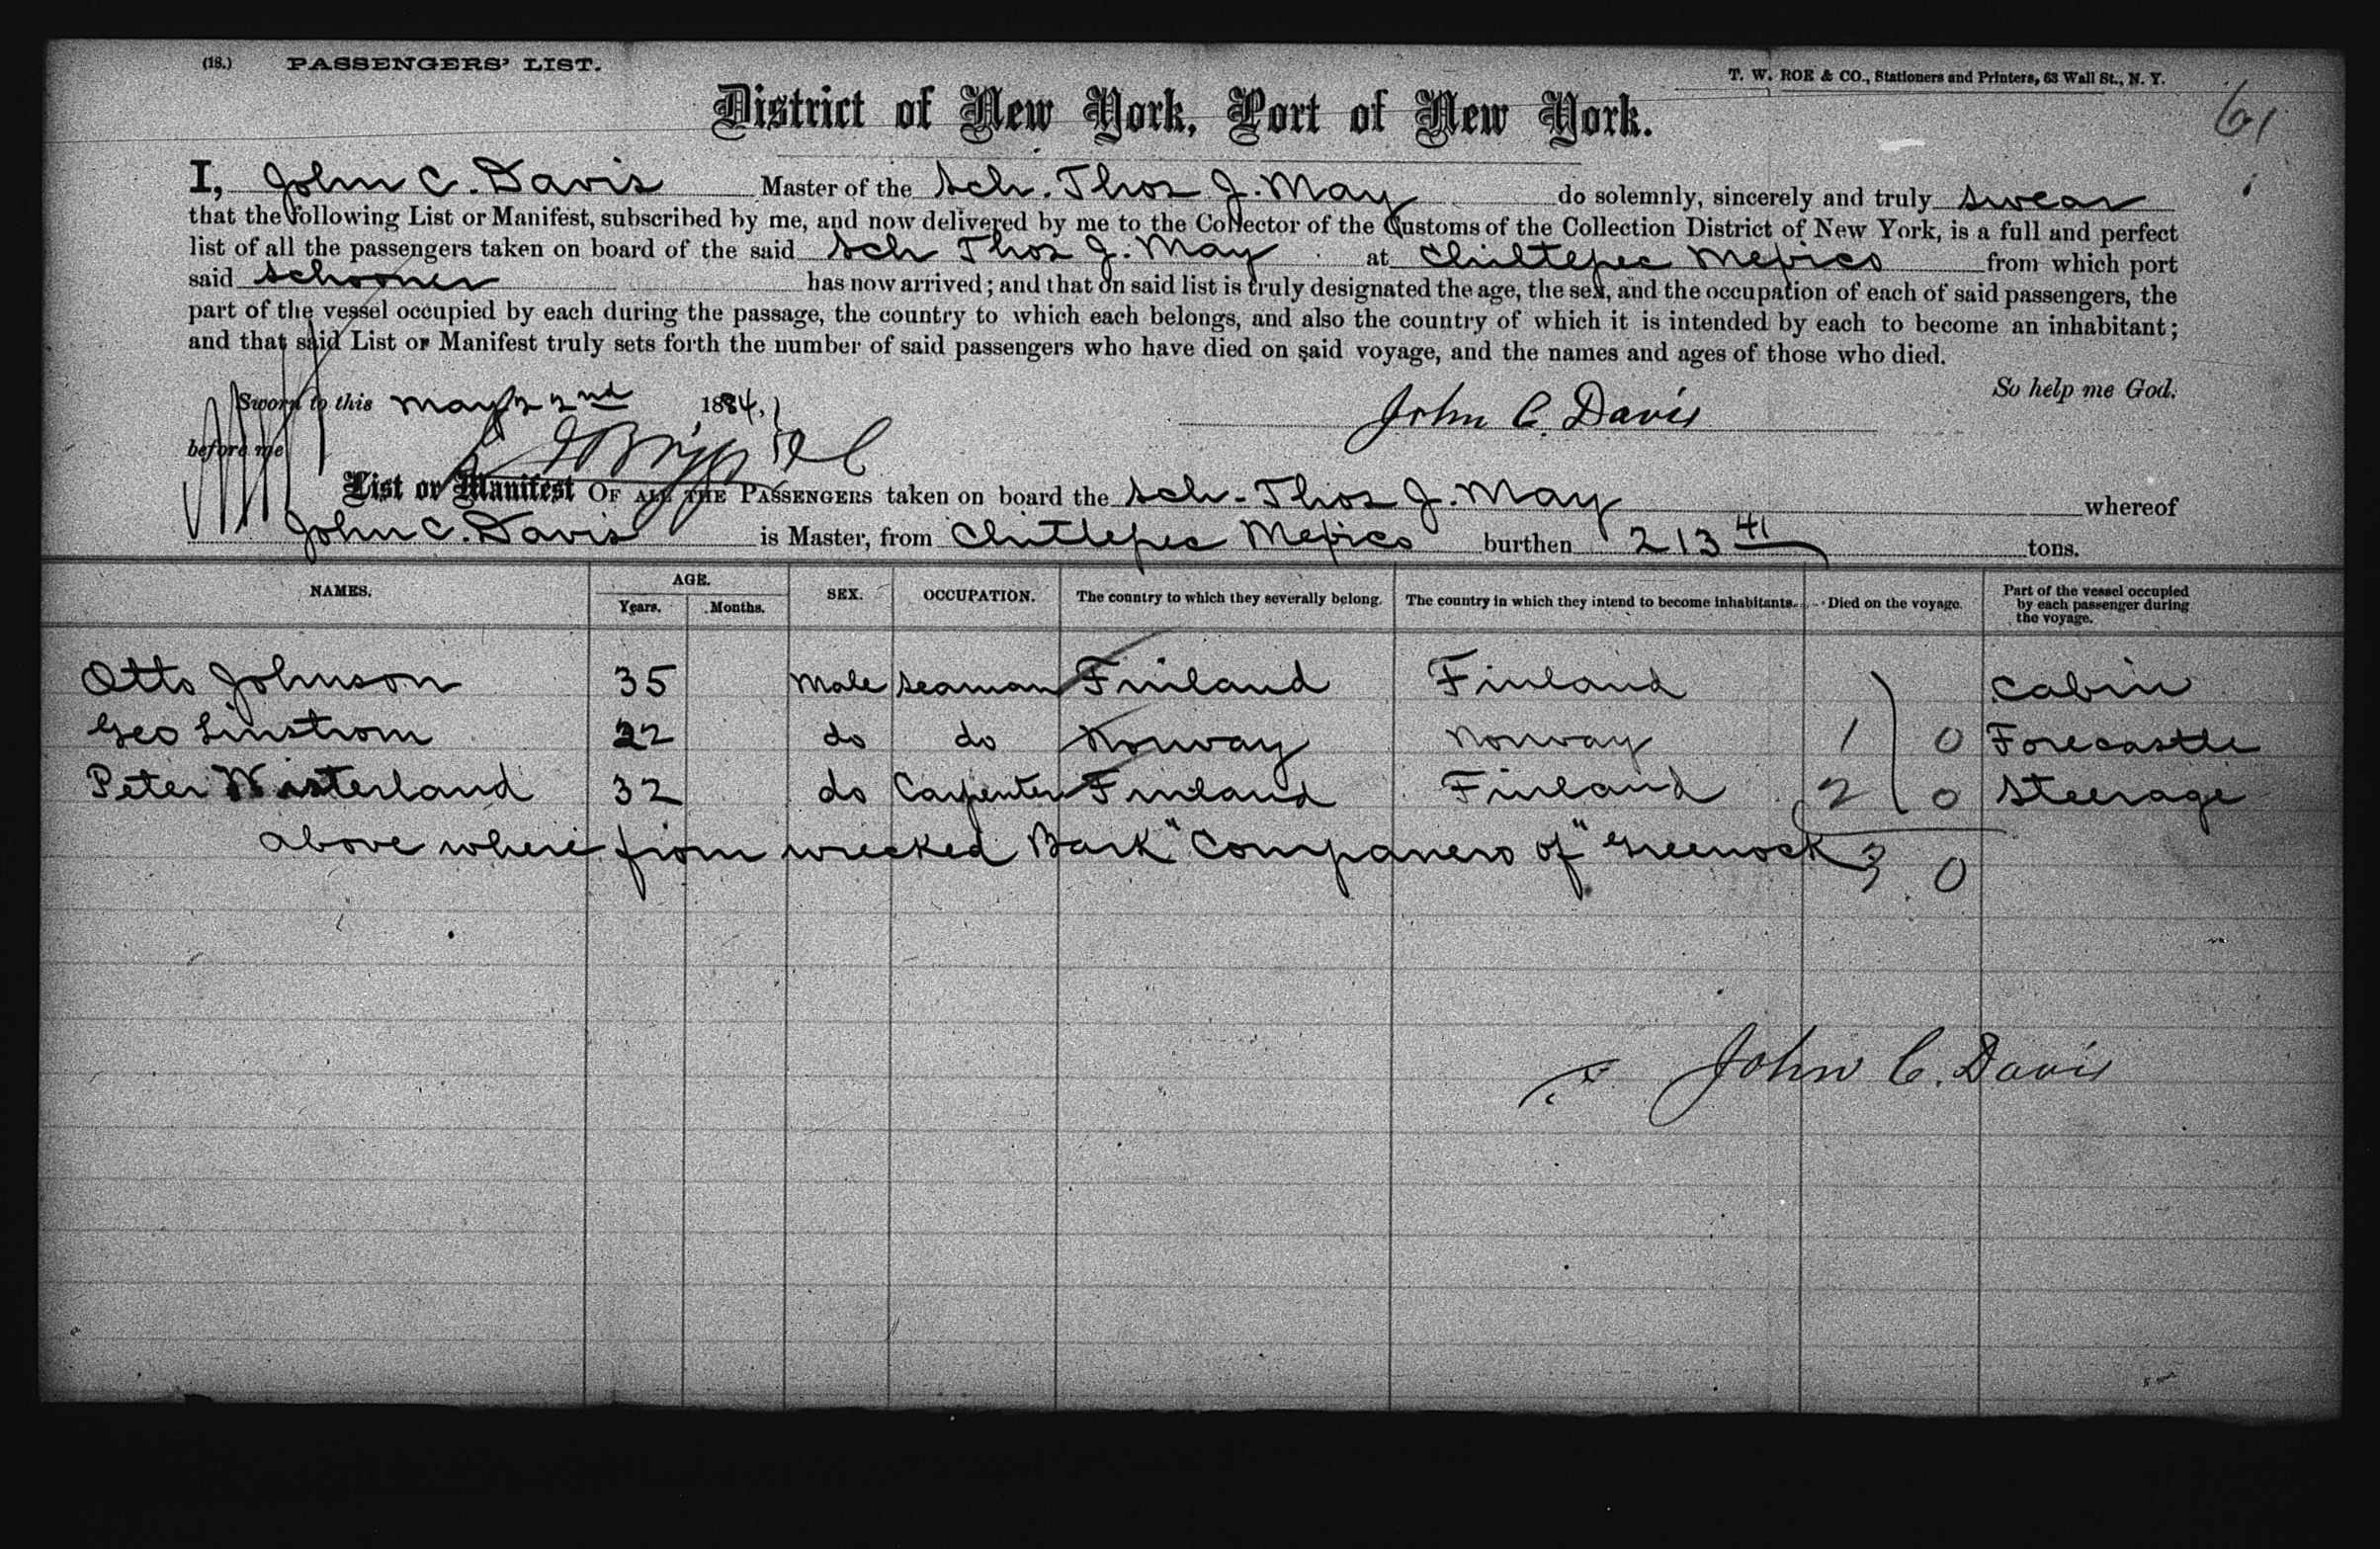 (18.) PASSENGERS' LIST.
T. W. ROE & CO., Stationers and Printers, 63 Wall St., N. Y.
61
District of New York, Port of New York.
I, John C. Davis Master of the Sch. Thos J. May do solemnly, sincerely and truly swear
that the following List or Manifest, subscribed by me, and now delivered by me to the Collector of the Customs of the Collection District of New York, is a full and perfect
list of all the passengers taken on board of the said Sch Thos J. May at Chiltepec Mexico from which port
said schooner has now arrived; and that on said list is truly designated the age, the sex, and the occupation of each of said passengers, the
part of the vessel occupied by each during the passage, the country to which each belongs, and also the country of which it is intended by each to become an inhabitant;
and that said List or Manifest truly sets forth the number of said passengers who have died on said voyage, and the names and ages of those who died.
So help me God.
Sworn to this May 22nd 1884,
John C. Davis
before me
List or Manifest OF ALL THE PASSENGERS taken on board the Sch. Thos J. May whereof
John C. Davis is Master, from Chiltepec Mexico burthen 213 41 tons.
NAMES. AGE. Years. Months. SEX. OCCUPATION. The country to which they severally belong. The country in which they intend to become inhabitants. Died on the voyage. Part of the vessel occupied by each passenger during the voyage.
Otto Johnson 35 Male Seaman Finland Finland Cabin
Geo Linstrom 22 do do Norway Norway 1 0 Forecastle
Peter Wisterland 32 do Carpenter Finland Finland 2 0 Steerage
above where from wrecked Bark "Companero of" Greenock 3 0
John C. Davis